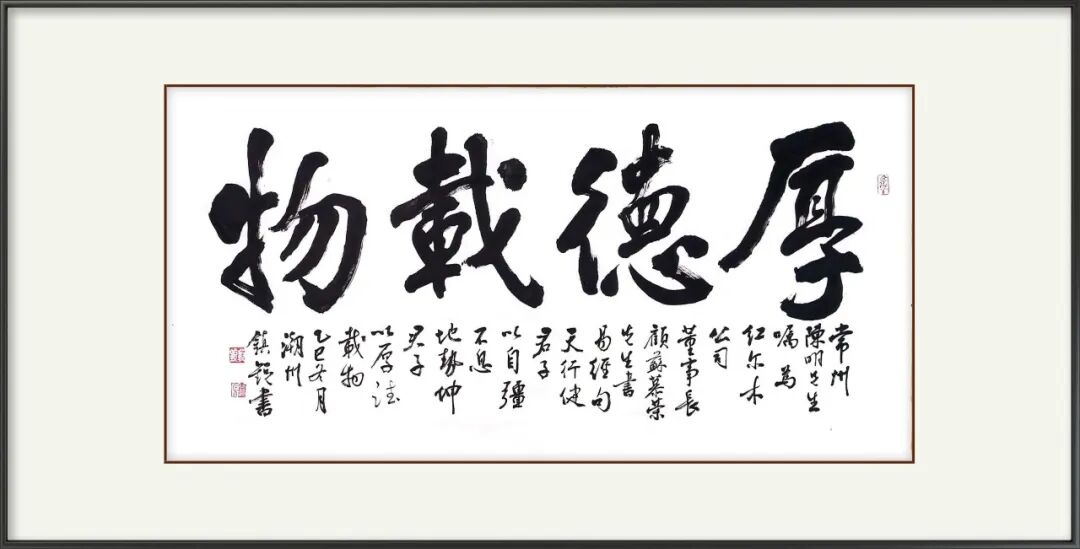 厚德載物
常州
陳明先生
囑為
紅尔木
公司
董事長
顧蘇慕榮
先生書
易經句
天行健
君子
以自彊
不息
地勢坤
君子
以厚德
載物
乙巳冬月
潮州
鎮 書